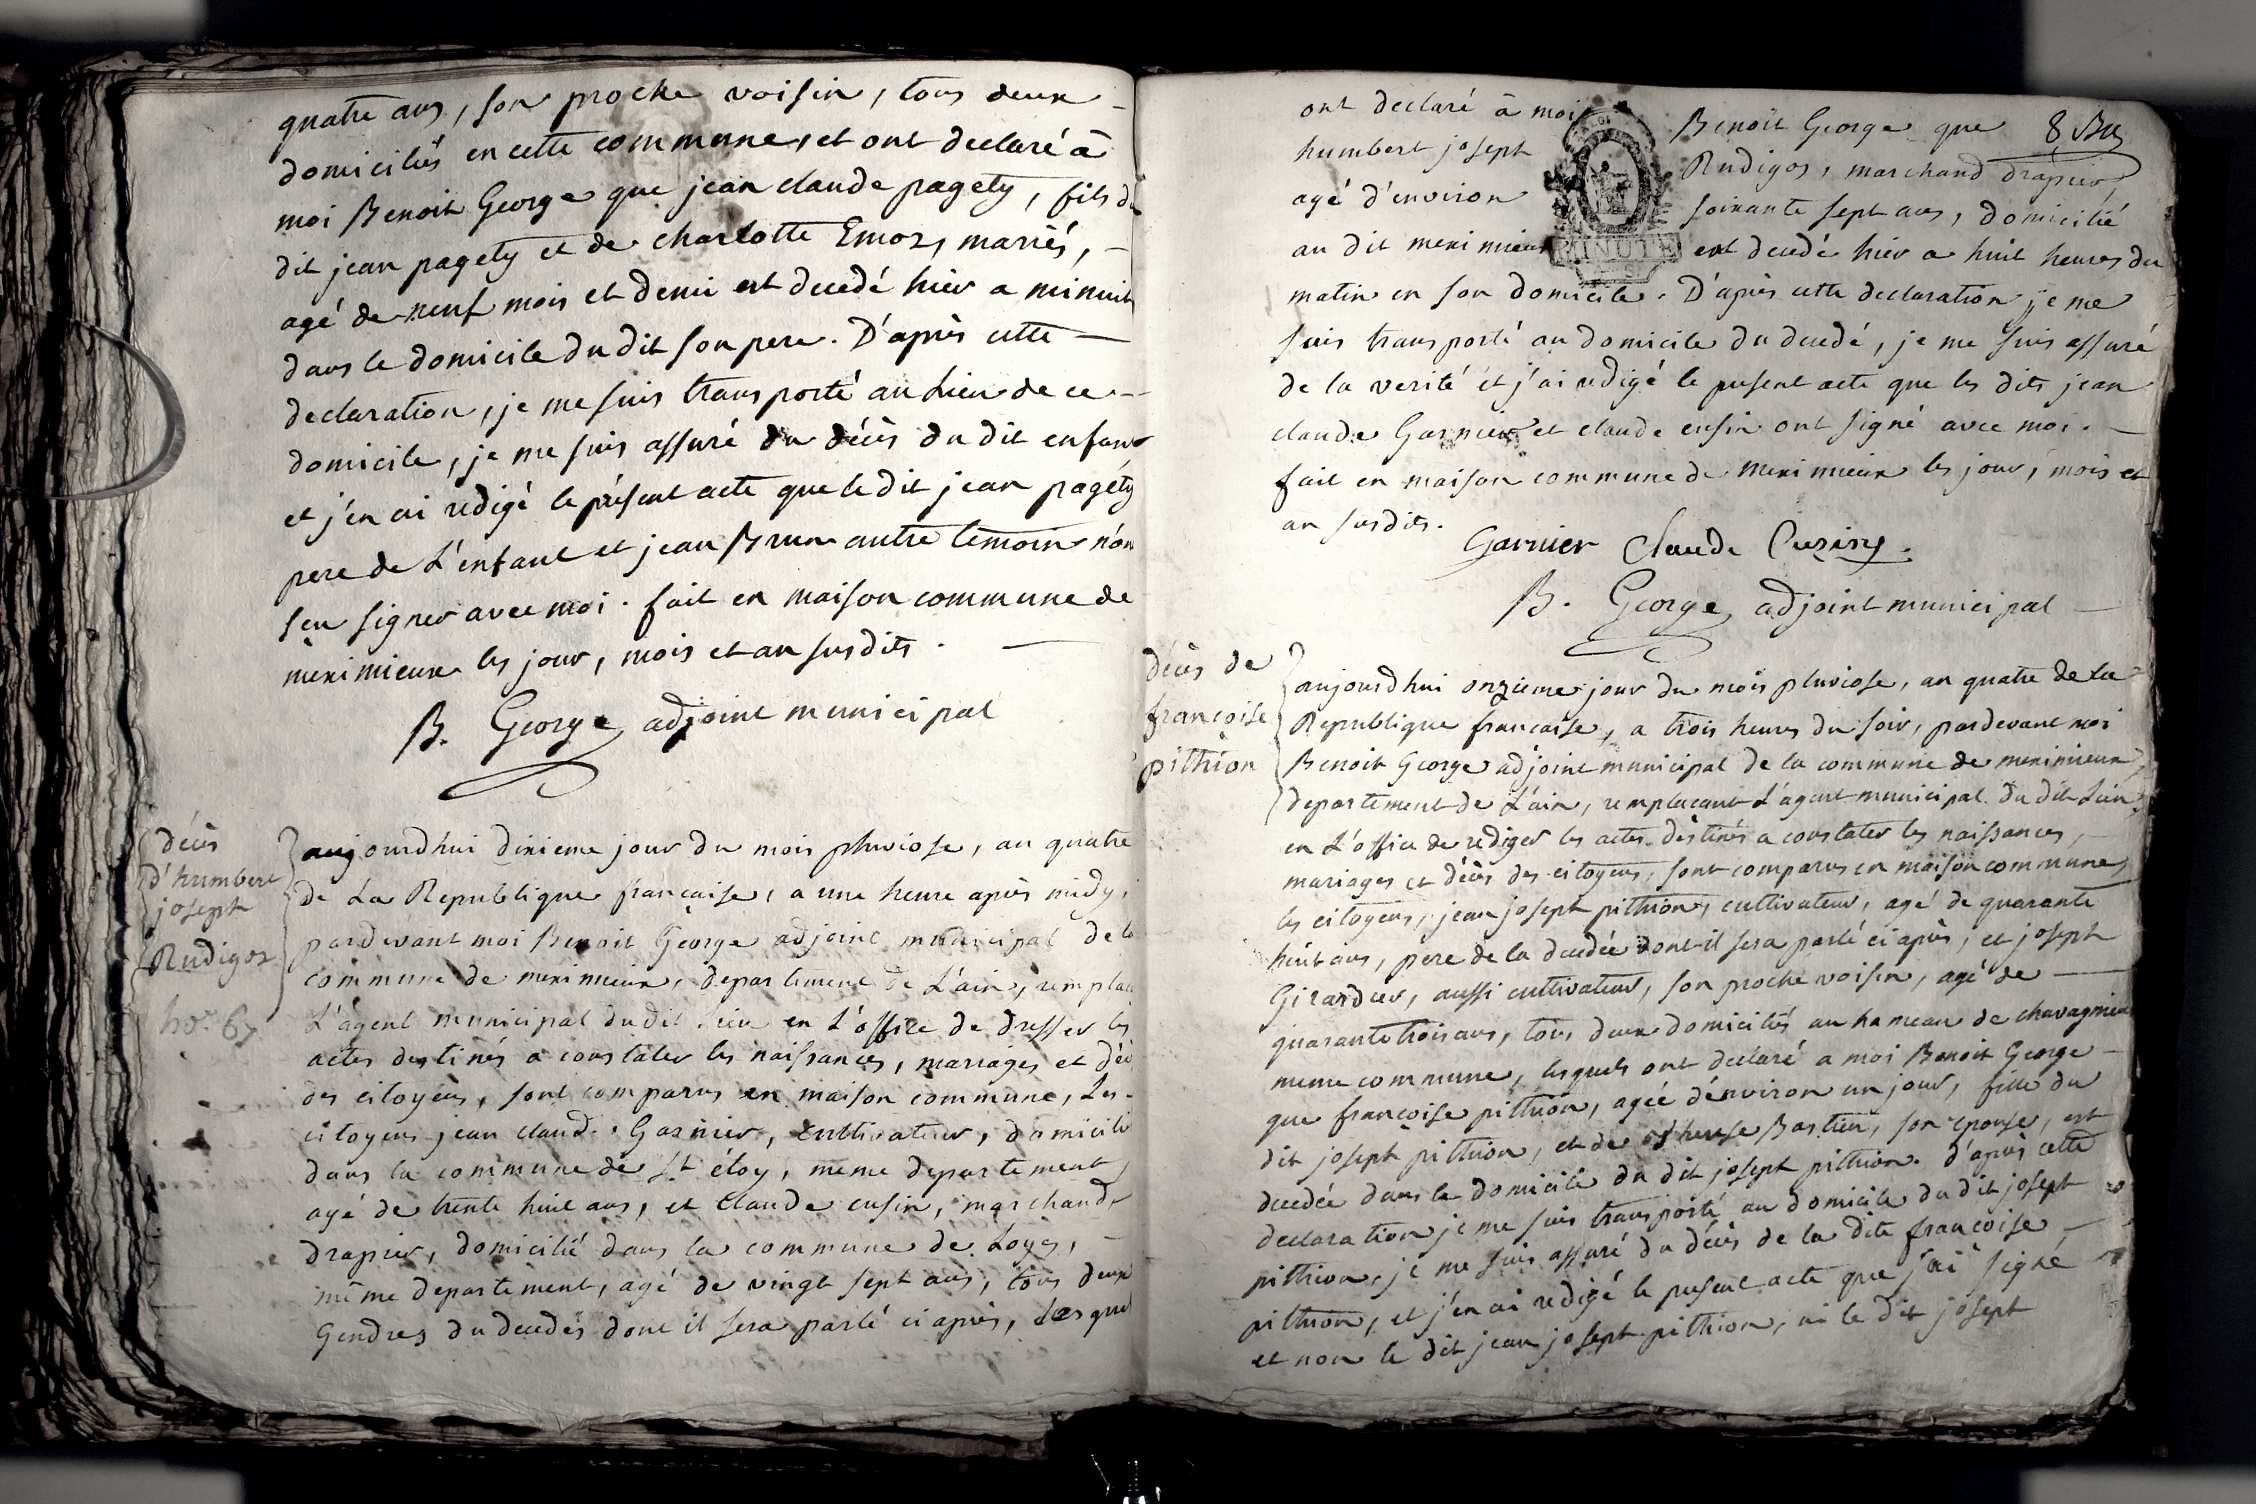 quatre ans, son proche voisin, tous deux
domiciliés en cette commune, et ont declaré à
moi Benoit George que jean claude pagety, fils du
dit jean pagety et de charlotte Emoz, mariés,
agé de neuf mois et demi est decedé hier a minuit
dans le domicile du dit son pere. D'après cette
declaration, je me suis transporté au Lieu de ce
domicile, je me suis assuré du décès du dit enfant
et j'en ai redigé le présent acte que le dit jean pagéty
pere de L'enfant et jean Brun autre temoin n'on
seu signer avec moi. fait en maison commune de
meximieux les jour, mois et an susdits.
B. George adjoint municipal
décès
d'humbert
joseph
Rudigoz
aujourdhui dixieme jour du mois pluviose, an quatre
de La Republique française, a une heure après midy,
pardevant moi Benoit George adjoint municipal de la
commune de meximieux, departement de L'ain, remplaç
L'agent municipal du dit Lieu en L'office de dresser les
actes destinés a constater les naissances, mariages et déc
des citoyens, sont comparus en maison commune, Les
citoyens jean claude Garnier, Cultivateur, domicilié
dans la commune de St éloy, meme departement,
agé de trente huit ans, et Claude cusin, marchand
drapier, domicilié dans la commune de Loyes,
même departement, agé de vingt sept ans, tous deux
Gendres du decedés dont il sera parlé ci après, Lesquel
8 Bre
ont declaré à moi Benoit George que
humbert joseph Rudigoz, marchand drapier,
agé d'environ soixante sept ans, domicilié
au dit meximieux est decedé hier a huit heures du
MINUTE
matin en son domicile. D'après cette declaration je me
suis transporté au domicile du decedé, je me suis assuré
de la verité et j'ai redigé le present acte que les dits jean
claude Garnier et claude cusin ont signé avec moi.
fait en maison commune de meximieux les jour, mois et
an susdits.
Garnier Claude Cusin
B. George adjoint municipal
décès de
françoise
pithion
aujourdhui onzieme jour du mois pluviose, an quatre de La
Republique francaise, a trois heures du soir, pardevant moi
Benoit George adjoint municipal de la commune de meximieux,
departement de L'ain, remplacant L'agent municipal du dit Lieu
en L'office de rediger les actes destinés a constater les naissances,
mariages et décès des citoyens, sont comparus en maison commune,
les citoyens, jean joseph pithion, cultivateur, agé de quarante
heuit ans, pere de la decedée dont il sera parlé ci après, et joseph
Girardier, aussi cultivateur, son proche voisin, agé de
quarante trois ans, tous deux domiciliés au hameau de chavagnieu
meme commune, lesquels ont declaré a moi Benoit George
que françoise pithion, agée d'environ un jour, fille du
dit joseph pithion, et de therese Bastien, son epouse, est
decedée dans le domicile du dit joseph pithion. d'après cette
declaration je me suis transporté au domicile du dit joseph
pithion, je me suis assuré du décès de la dite francoise
pithion, et j'en ai redigé le present acte que j'ai signé
et non le dit jean joseph pithion, ni le dit joseph